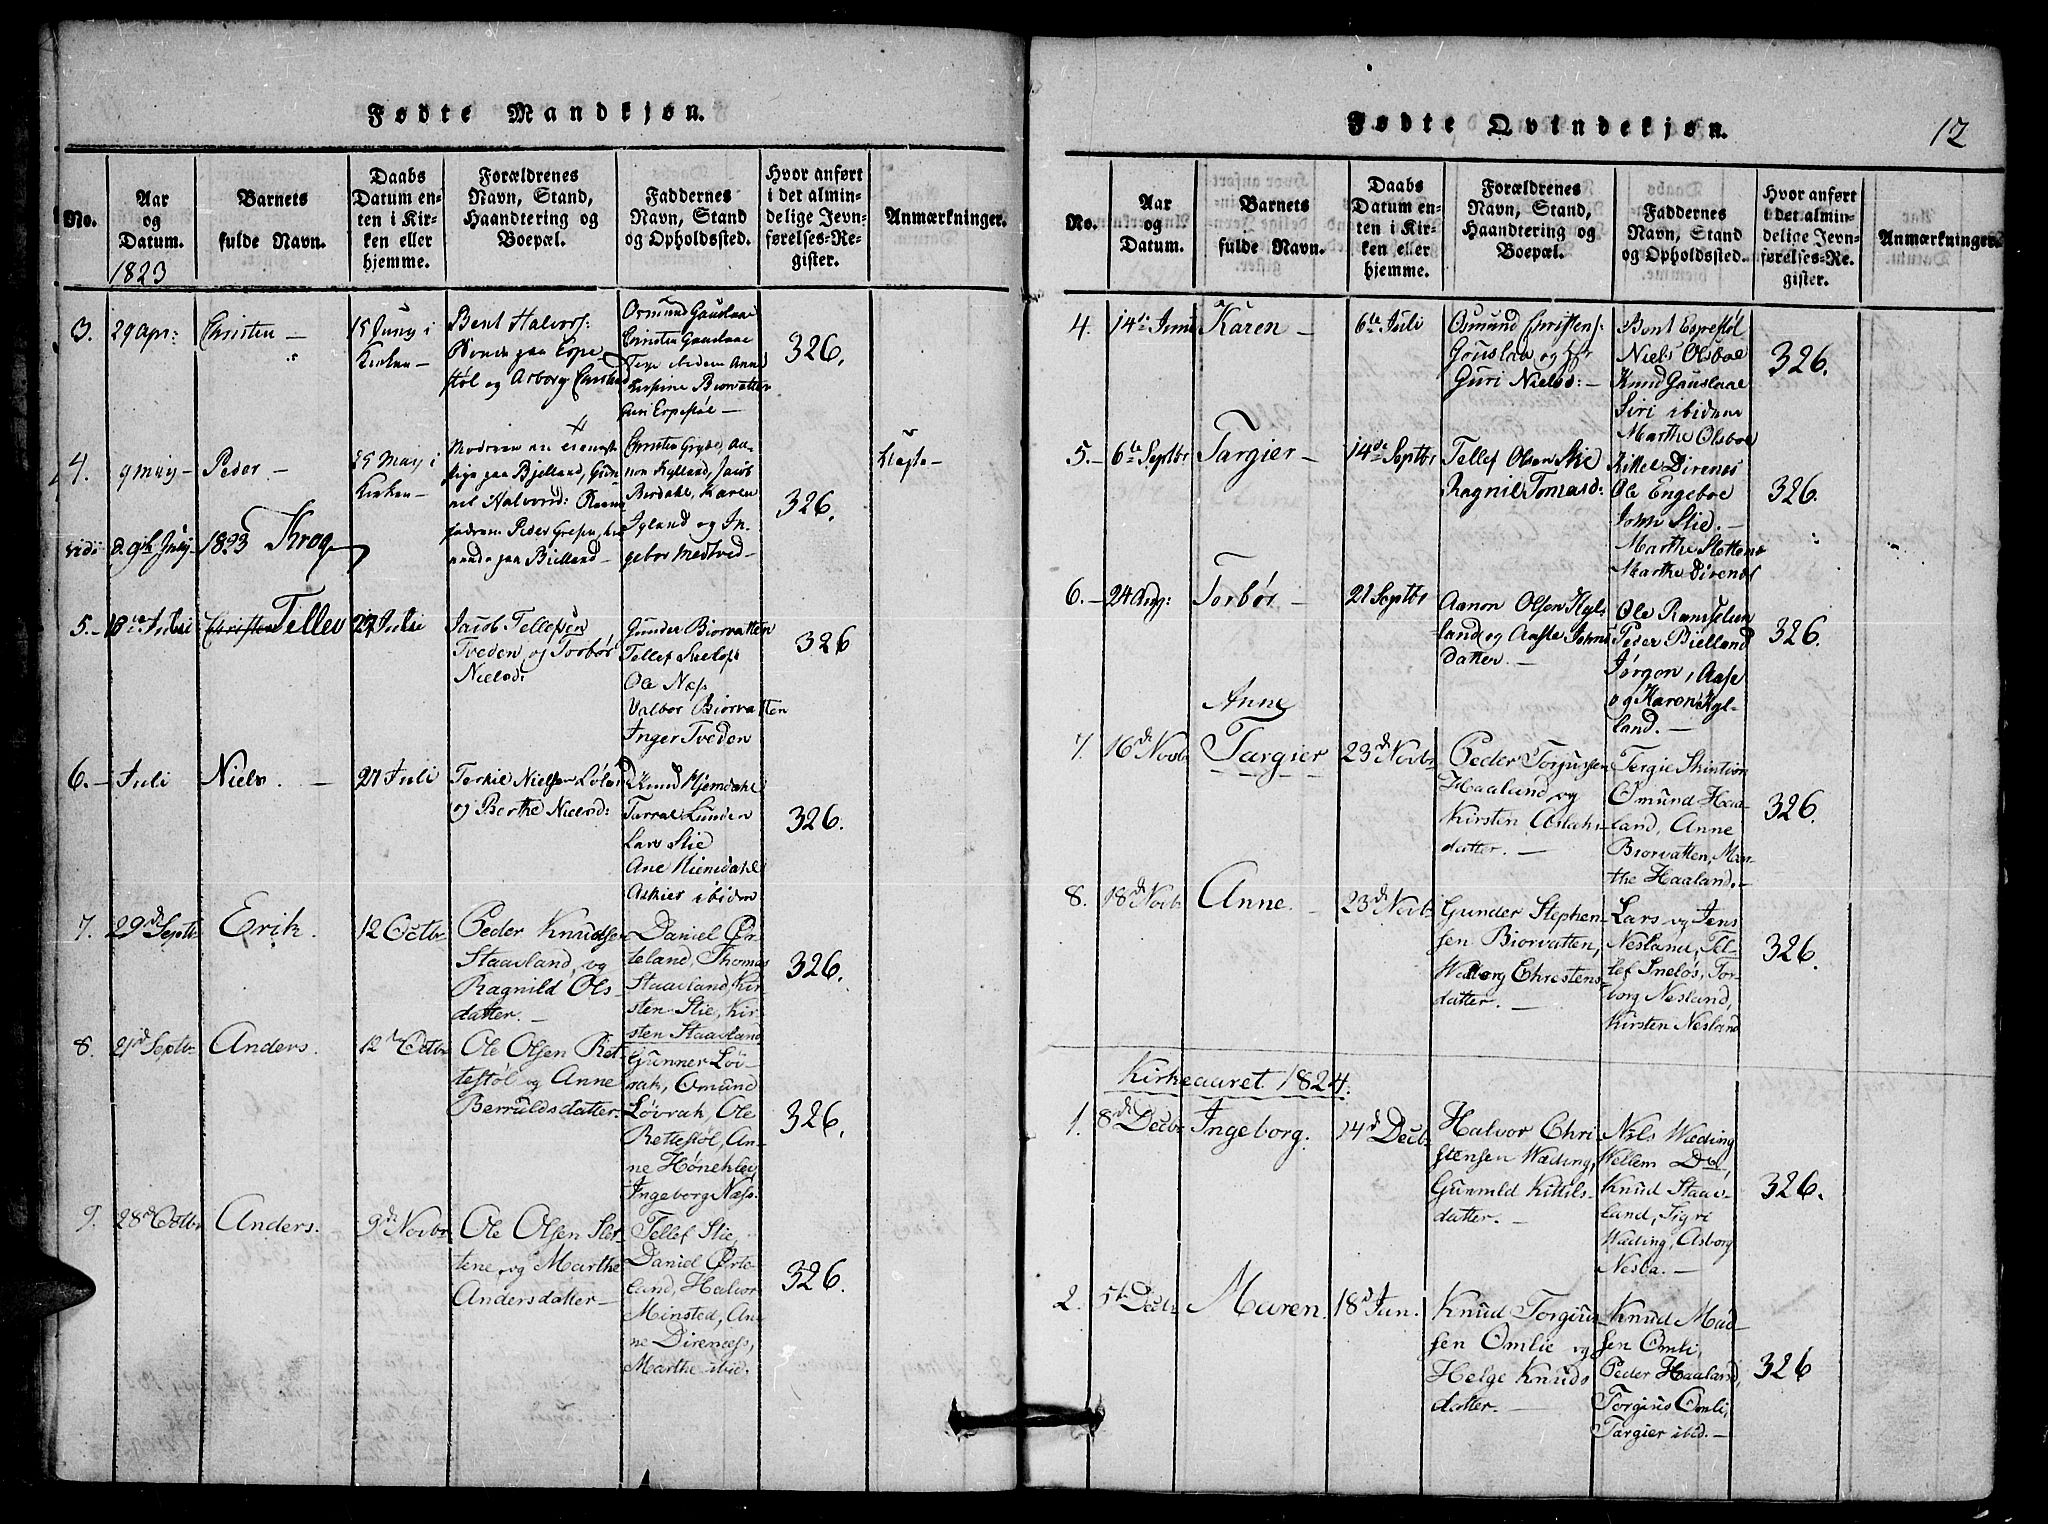 Fødte Mandkjøn.
No.
Aar
og
Datum.
1823
Barnets
fulde Navn.
Daabs
Datum en-
ten i Kir-
ken eller
hjemme.
Forældrenes
Navn, Stand,
Haandtering og
Boepæl.
Faddernes
Navn, Stand
og Opholdssted.
Hvor anført
i det almin-
delige Jevn-
førelses-Re-
gister.
Anmærkninger.
3.
29 apr:
Christen
15 Juny i
Kirken
Bent Halvors:
Bonde paa Espe-
støl og Asborg
Osmund Gauslaae
Christen Gauslaae
Terje ibidem Anne
Kirstine Biorvatten
Guri Espestøl
326.
4.
9 may
Peder
25 May i
Kirken
paa Bjelland, Gun-
Halvorsd:
Peder
paa Bielland
Christen Gryde, Aa-
non Kylland, Jacob
Birdahl, Karen
Igland og In-
gebor Medtved
326.
vidi d. 9th July 1823 Krog
5.
Juli
Christen Tellev
27 Juli
Jacob Tellefsen
Tveden og Torbør
Nielsd:
Gunder Biorvatten
Tellef Sneløs
Ole Næs
Valbor Biorvatten
Inger Tveden
326
6.
Juli
Niels.
27 Juli
Terkil Nielsen
og Berthe Nielsd:
Knud Hjemdahl
Tarral Lunden
Lars Stie
Ane Hiemdahl
Askier ibidem
326.
7.
29d Septbr
Erik.
12 Octbr
Peder Knudsen
Staavland, og
Ragnild Ols-
datter.
Daniel Ør-
teland, Thomas
Staavland, Kir-
sten Stie, Kir-
sten Staavland
326.
8.
21d Septbr
Anders.
12te Octbr
Ole Olsen Ret-
testøl og Anne
Berruldsdatter.
Gunner Löv-
rak, Omund
Lövrak, Ole
Rettestøl, An-
ne Hönehlei
Ingeborg Næs.
326.
9.
28d Octbr
Anders.
9de Novbr
Ole Olsen Slet-
tene, og Marthe
Andersdatter
Tellef Stie,
Daniel Ørte-
land, Halvor
Minsted, An-
ne Direnæs,
Marthe ibid.
326.
Fødte Qvindekjøn.
12
No.
Aar
og
Datum.
Barnets
fulde Navn.
Daabs
Datum en-
ten i Kir-
ken eller
hjemme.
Forældrenes
Navn, Stand,
Haandtering og
Boepæl.
Faddernes
Navn, Stand
og Opholdssted.
Hvor anført
i det almin-
delige Jevn-
førelses-Re-
gister.
Anmærkninger.
4.
14de Junii
Karen
6te Juli
Osmund Christens:
Gouslaa og
Guri Nielsd:
Bent Espestøl
Niels Olsboe
Knud Gauslaae
Siri ibidem
Marthe Olsboe
326.
5.
6te Septbr
Targier
14de Septbr
Tellef Olsen Stie
Ragnil Tomasd:
Kittel Direnes
Ole Engeboe
John Stie.
Marthe Slettene
Marthe Direnes
326.
6.
24 Aug:
Torbør
21 Septbr
Aanon Olsen Kyl-
land og Aasle Johns
datter.
Ole Ramselien
Peder Bielland
Jørgen, Aase
og Karen Kyl-
land.
326.
7.
16de Novbr
Anne
Targier
23de Novbr
Peder Torjussen
Haaland, og
Kirsten Aslaks-
datter.
Tergie Skintion
Omund Haa-
land, Anne
Biorvatten, Mar-
the Haaland.
326.
8.
18de Novbr
Anne
23de Novbr
Gunder Stephen-
sen Biorvatten,
Walborg Chrestens-
datter.
Lars og Jens
Nesland, Tel-
lef Sneløs, Tor-
borg Nesland,
Kirsten Nesland
326.
Kirkeaaret 1824.
1.
8de Decbr
Ingeborg.
14d Decbr
Halvor Chri-
stensen Wæding,
Gunnild Kittils-
datter.
Nils Wæding
Wellem Do
Knud Staav-
land, Sigri
Wæding, Asborg
Nesba.
326.
2.
5te Decbr
Maren
18d Jan.
Knud Torgius-
sen Omlie og
Helge Knuds
datter.
Knud Mad-
sen Omli,
Peder Haaland,
Torgius Omli,
Targier ibid.
326